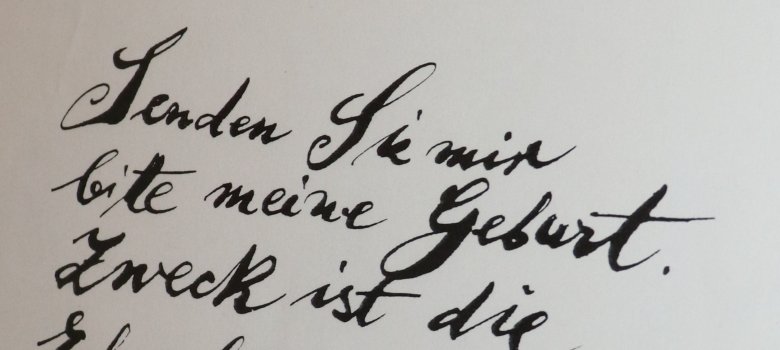 Senden Sie mir
bitte meine Geburt.
Zweck ist die